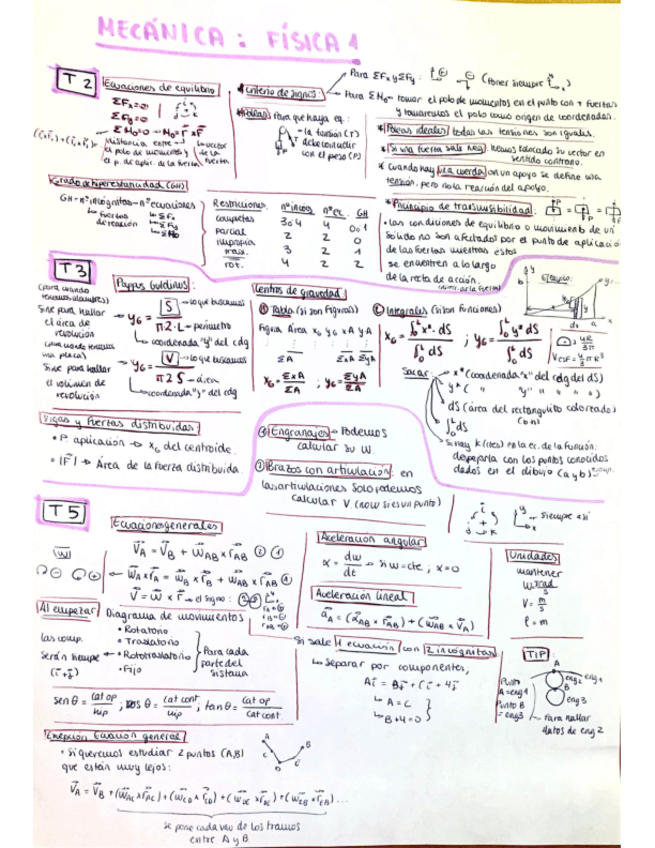 MECÁNICA: FÍSICA 1
T2
Ecuaciones de equilibrio
ΣFx=0
ΣFy=0
ΣM0=0 → M0=r×F
Distancia entre
el polo de momentos y
el p. de aplic. de la fuerza
vector
de la
fuerza
* Criterio de signos:
Para ΣFx y ΣFy:
(Poner siempre
Para ΣM0 → tomar el polo de momentos en el punto con + fuerzas
y tomaremos el polo como origen de coordenadas.
* Poleas Para que haya eq.:
- la tensión (T)
debe coincidir
con el peso (P)
* Poleas ideales: todas las tensiones son iguales.
* Si una fuerza sale neg: hemos colocado su vector en
sentido contrario.
* Cuando hay una cuerda en un apoyo se define una
tensión, pero no la reacción del apoyo.
Grado de hiperestaticidad (GH)
GH = nº incógnitas - nº ecuaciones
fuerzas
de reación
ΣFx
ΣFy
ΣM0
Restricciones nº incóg nº ec. GH
completas 3 o 4 4 0 o 1
parcial 2 2 0
impropia 3 2 1
rot. 4 2 2
* Principio de transmisibilidad:
• las condiciones de equilibrio o movimiento de un
sólido no son afectados por el punto de aplicación
de las fuerzas mientras éstas
se encuentren a lo largo
de la recta de acción.
T3
Pappus Guldinus:
(para cuando
tenemos alambres)
Sirve para hallar
el área de
revolución
yG = S / π2·L
lo que buscamos
perímetro
coordenada "y" del cdg
(para cuando tenemos
una placa)
Sirve para hallar
el volumen de
revolución
yG = V / π2S
lo que buscamos
área
coordenada "y" del cdg
Centros de gravedad:
Tabla (si son figuras)
Figura Área xG yG xA yA
ΣA ΣxA ΣyA
xG = ΣxA / ΣA ; yG = ΣyA / ΣA
Integrales (si son funciones)
Ejemplo:
Sacar:
x* (coordenada "x" del cdg del dS)
y* ( " "y" " " " )
dS (área del rectangulito coloreado)
(b·h)
Si hay k (ctes) en la ec. de la función:
despejarla con los puntos conocidos
dados en el dibujo (a y b)
Vigas y fuerzas distribuidas:
• P. aplicación → xG del centroide.
• |F| → Área de la fuerza distribuida.
Engranajes → Podemos
calcular su W.
Brazos con articulación: en
las articulaciones solo podemos
calcular V. (no w si es un punto)
T5
Ecuaciones generales
VA = VB + WAB × rAB
V = w × r → el signo:
Aceleración angular
α = dw / dt → si w=cte, α=0
Aceleración lineal
aA = (αAB × rAB) + (wAB × VA)
siempre así
Unidades
mantener
W = rad / s
V = m / s
l = m
Al empezar Diagrama de movimientos
las comp.
serán siempre
• Rotatorio
• Traslatorio
• Rototraslatorio
• Fijo
Para cada
parte del
sistema
sen θ = cat op / hip ; cos θ = cat cont / hip ; tan θ = cat op / cat cont
Si sale 1 ecuación con 2 incógnitas
separar por componentes;
A = C
B + 4 = 0
TIP:
Punto
A = eng 1
Punto B
= eng 3
eng 2
eng 1
eng 3
Para hallar
datos de eng 2
Excepción Ecuación general
• Si queremos estudiar 2 puntos (A,B)
que están muy lejos:
VA = VB + (WAC × rAC) + (WCD × rCD) + (WDE × rDE) + (WEB × rEB) ...
se pone cada uno de los tramos
entre A y B